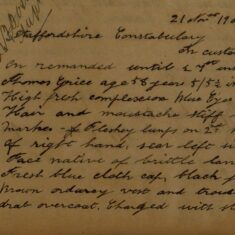 21 Nov. 190
Staffordshire Constabulary
In custo
On remanded until
Thomas Grice age 58 years 5/5½ in
High fresh complexion blue Eye
Hair and moustache stiff
marks - 2 Fleshy lumps on 2nd
of right hand, scar left
Face native of brittle lane
Fresh blue cloth cap, black
Brown ordurey vest and trou
drab overcoat. Charged with st